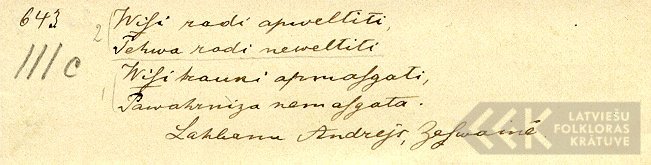 643
2
Wiſi radi apweltiti,
Tehwa radi neweltiti
III c
1
Wiſi kauni apmaſgati,
Pawahrniza nemaſgata.
Lahbanu Andrejs, Zeſwainē
LATVIEŠU
FOLKLORAS
KRĀTUVE